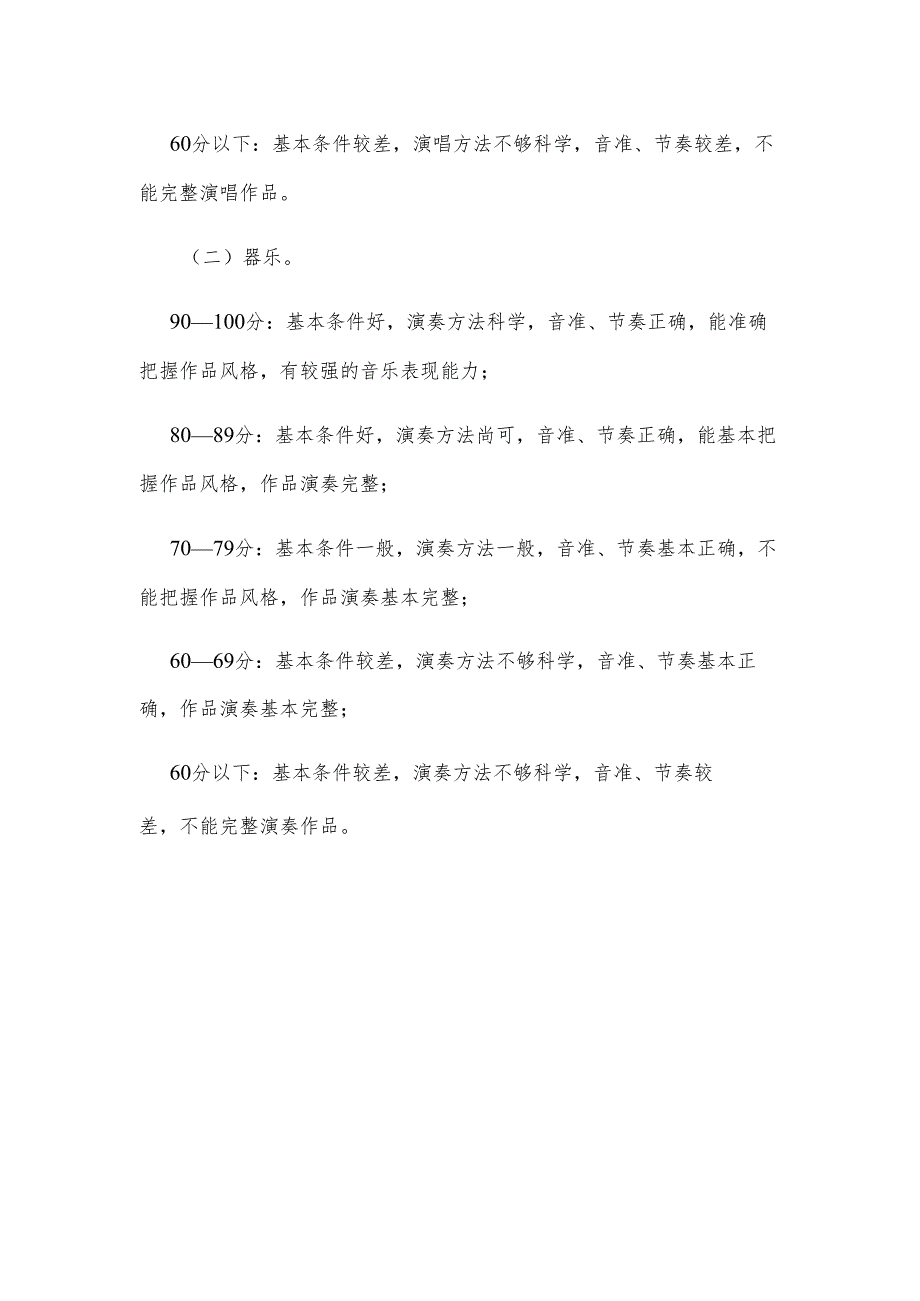 60分以下：基本条件较差，演唱方法不够科学，音准、节奏较差，不
能完整演唱作品。
（二）器乐。
90—100分：基本条件好，演奏方法科学，音准、节奏正确，能准确
把握作品风格，有较强的音乐表现能力；
80—89分：基本条件好，演奏方法尚可，音准、节奏正确，能基本把
握作品风格，作品演奏完整；
70—79分：基本条件一般，演奏方法一般，音准、节奏基本正确，不
能把握作品风格，作品演奏基本完整；
60—69分：基本条件较差，演奏方法不够科学，音准、节奏基本正
确，作品演奏基本完整；
60分以下：基本条件较差，演奏方法不够科学，音准、节奏较
差，不能完整演奏作品。